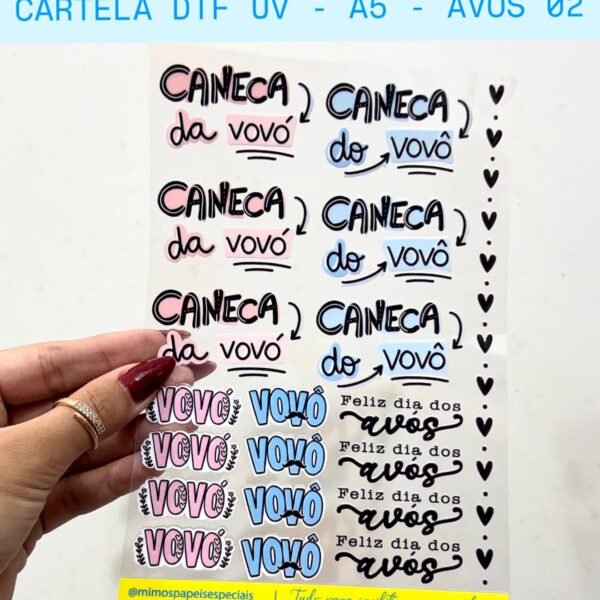 CARTELA DTF UV - A5 - AVÓS 02
CANECA
da VOVÓ
CANECA
do VOVÔ
CANECA
da VOVÓ
CANECA
do VOVÔ
CANECA
da VOVÓ
CANECA
do VOVÔ
VOVÓ VOVÔ Feliz dia dos
avós
VOVÓ VOVÔ Feliz dia dos
avós
VOVÓ VOVÔ Feliz dia dos
avós
VOVÓ VOVÔ Feliz dia dos
avós
@mimospapeisespeciais
Tudo para